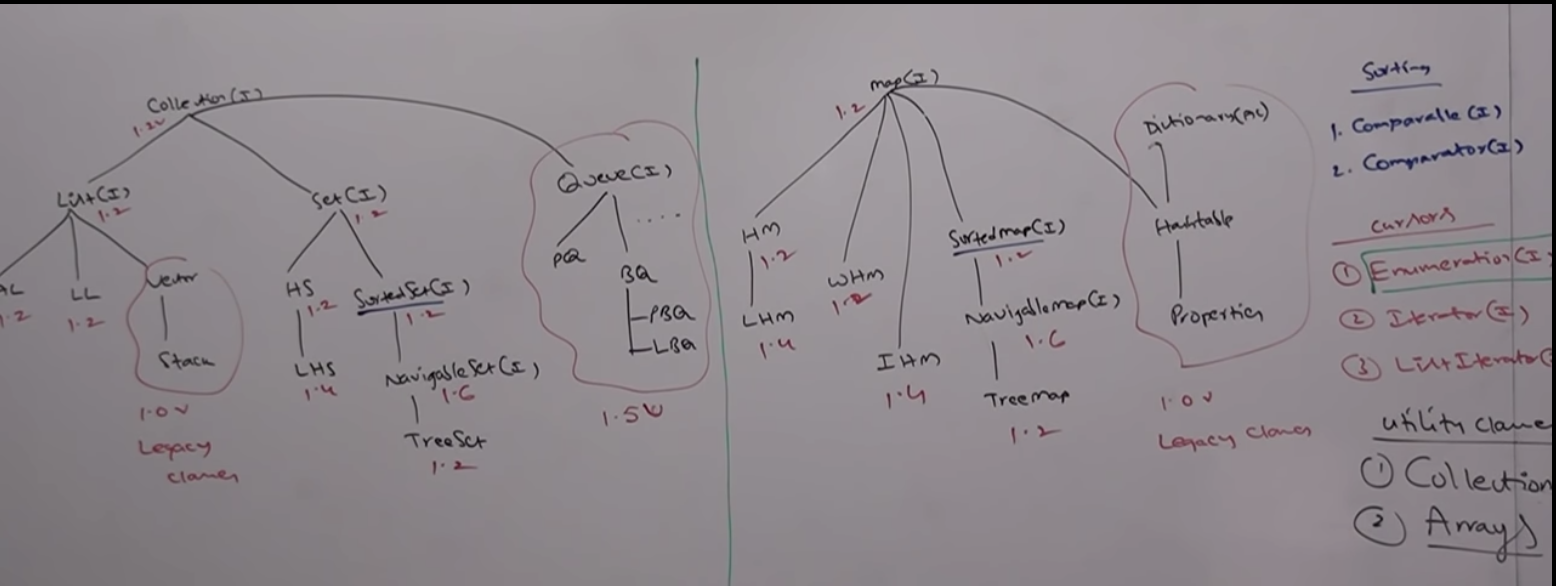 Collection(I)
1.2v
List(I)
1.2
AL
1.2
LL
1.2
Vector
Stack
1.0v
Legacy
classes
Set(I)
1.2
HS
1.2
LHS
1.4
SortedSet(I)
1.2
NavigableSet(I)
1.6
TreeSet
1.2
Queue(I)
....
PQ
BQ
PBQ
LBQ
1.5v
map(I)
1.2
HM
1.2
LHM
1.4
WHM
1.2
IHM
1.4
Sortedmap(I)
1.2
Navigablemap(I)
1.6
Treemap
1.2
Dictionary(AC)
Hashtable
Properties
1.0v
Legacy classes
Sorting
1. Comparable(I)
2. Comparator(I)
cursors
① Enumeration(I)
② Iterator(I)
③ ListIterator(
utility classe
① Collection
② Arrays